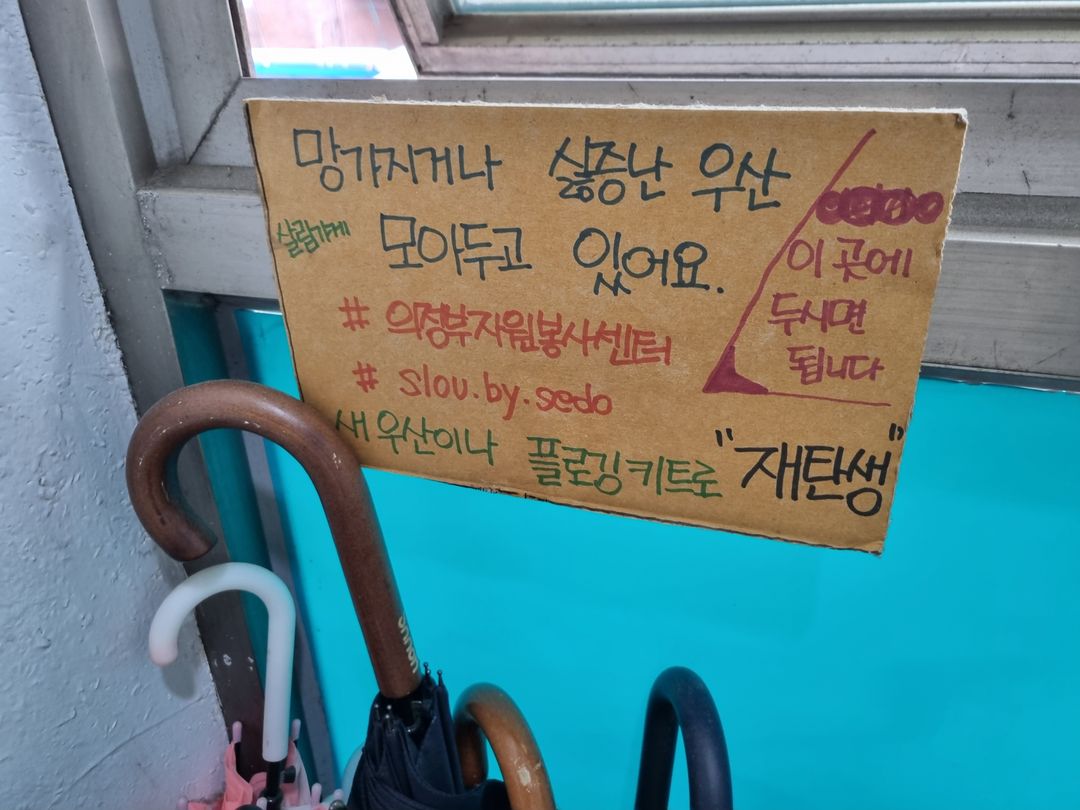 망가지거나 싫증난 우산
살림가게 모아두고 있어요.
# 의정부자원봉사센터
# slou.by.sedo
새우산이나 플로깅키트로 "재탄생"
이 곳에
두시면
됩니다